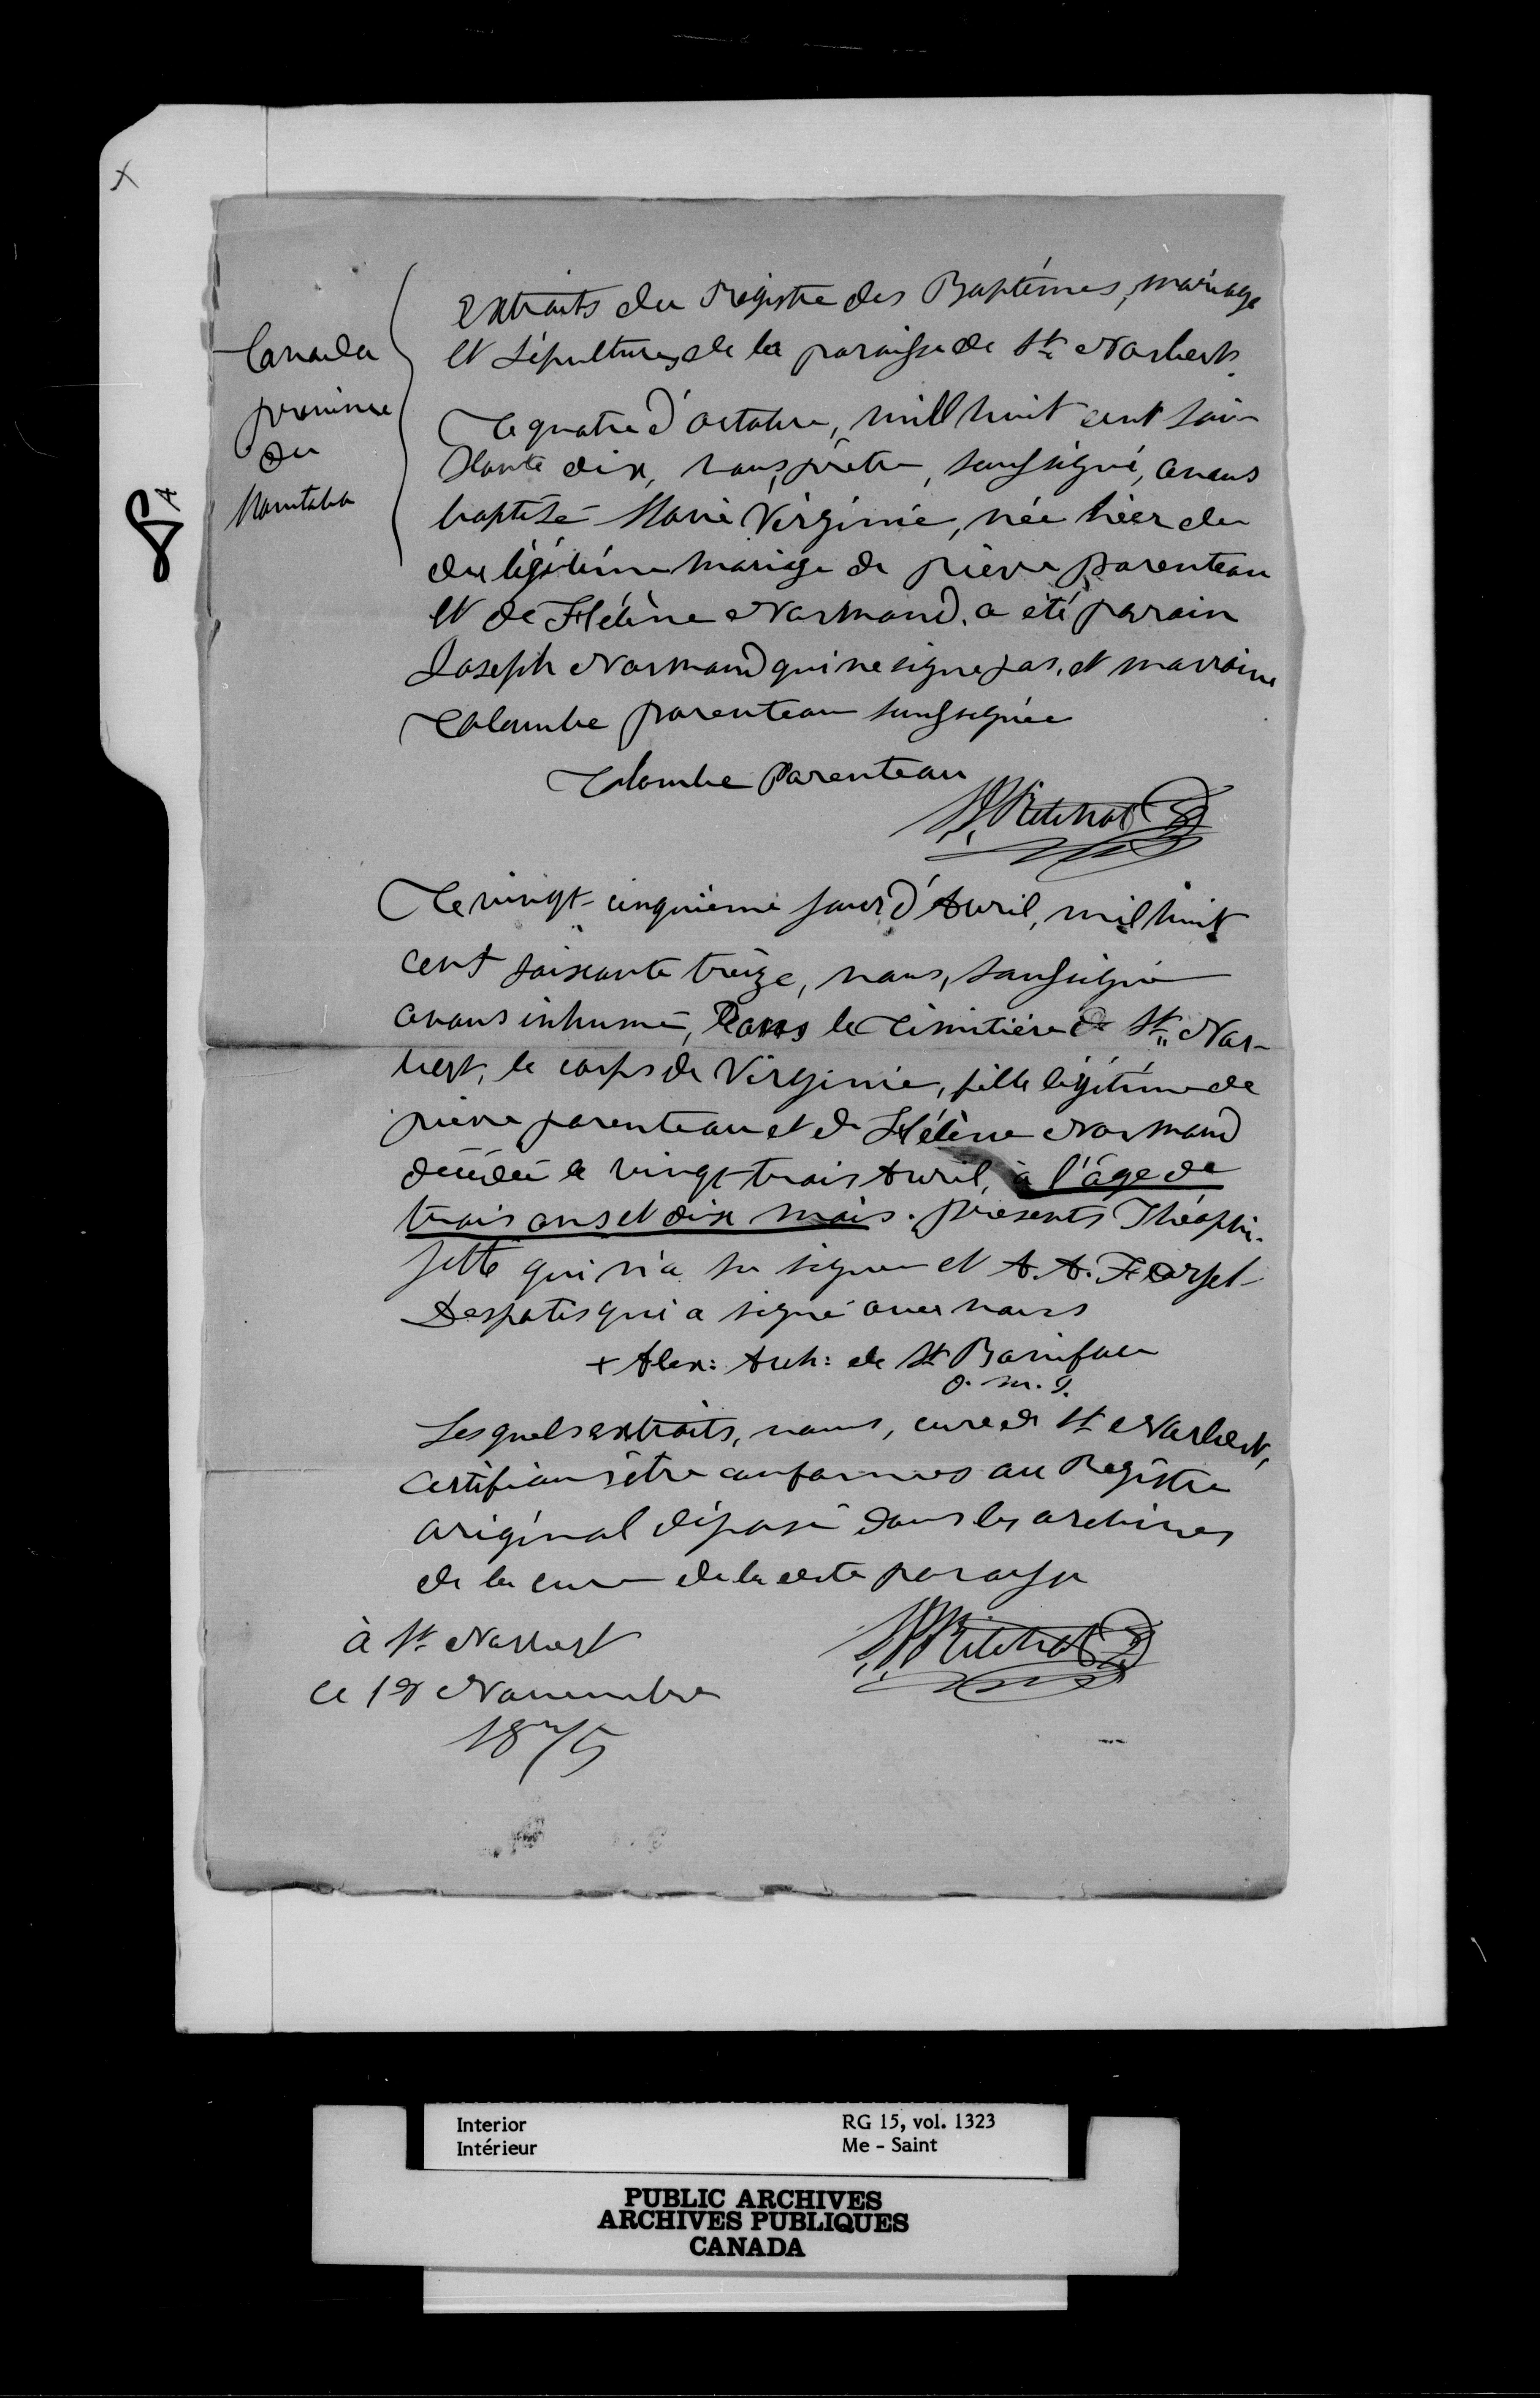 Canada
province
du
Manitoba
extraits du Régistre des Baptêmes, mariage
et Sépultures de la paroisse de St. Norbert.
Le quatre d'octobre, mill huit cent soi-
xante dix, nous, prêtre, soussigné, avons
baptisé Marie Virginie, née hier du
du légitime mariage de pierre parenteau
et de Hélène Normand. a été parain
Joseph Normand qui ne signe pas, et marraine
Colombe parenteau soussignée
Colombe Parenteau
N. J. Ritchot Ptre
Le vingt-cinquième jour d'Avril, mil huit
cent soixante treize, nous, soussigné
avons inhumé, dans le Cimitière de St. Nor-
bert, le corps de Virginie, fille légitime de
pierre parenteau et de Hélène Normand
décédée le vingt-trois Avril, à l'âge de
trois ans et dix mois. présents Théophi-
qui n'a su signer et A. A.
Despatis qui a signé avec nous
+ Alex: Arch: de St Boniface
o. m. I.
Lesquels extraits, nous, curé de St Norbert,
certifions être conformes au Régistre
original déposé dans les archives
de la cure de la dite paroisse
à St. Norbert
N. J. Ritchot Ptre
ce 18 Novembre
1875
X
Interior
Intérieur
RG 15, vol. 1323
Me - Saint
PUBLIC ARCHIVES
ARCHIVES PUBLIQUES
CANADA